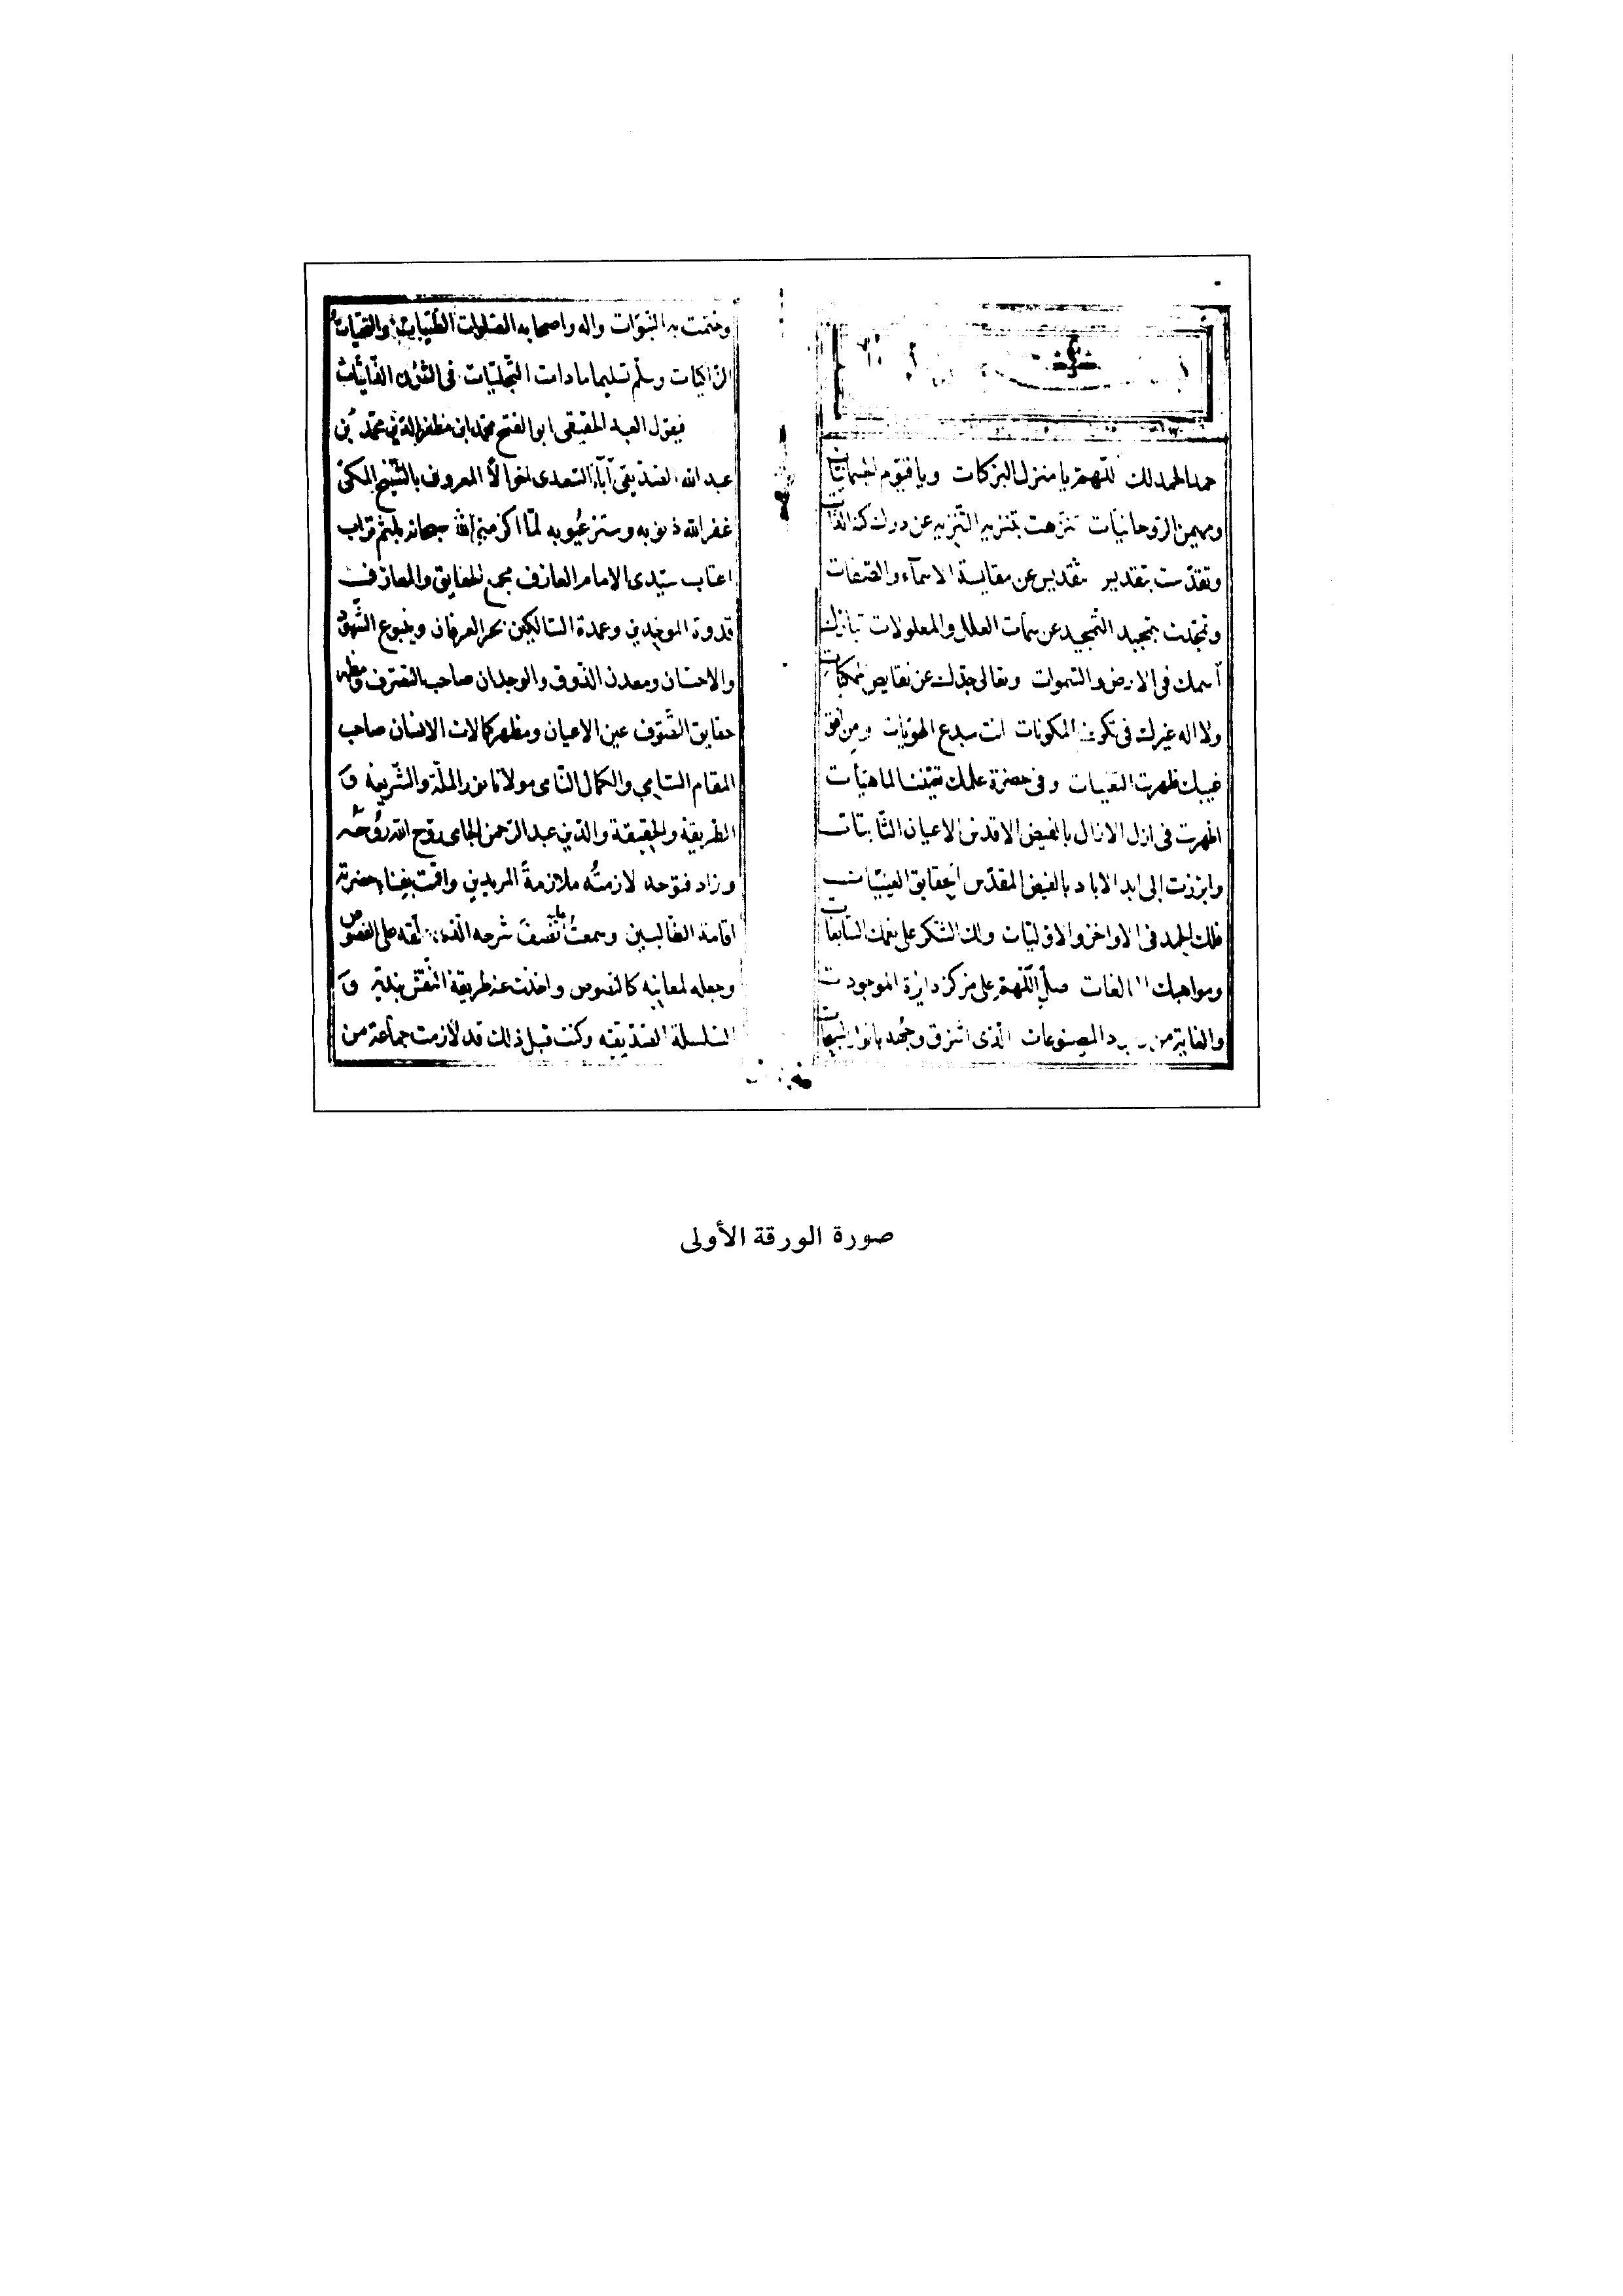 حمدا لحمد لك اللهم يا منزل البركات ويا قيوم الجسمانيات
ومهيمن الروحانيات تنزهت بتنزيه التنزيه عن درك كنه الذات
وتقدست بتقديس تقديس عن مقايسة الاسمآء والصفات
وتمجدت بتمجيد التمجيد عن سمات العلل والمعلولات تبارك
اسمك فى الارض والسموات وتعالى جدك عن نقايص الممكنات
ولا اله غيرك فى تكوين المكونات انت مبدع الهويات ومن افق
غيبك ظهرت التعينات وفى حضرة علمك تعينت الماهيات
اظهرت فى ازل الازال بالفيض الاقدس الاعيان الثابتات
وابرزت الى ابد الاباد بالفيض المقدس الحقايق الغيبيات
فلك الحمد فى الاواخر والاوليات ولك الشكر على نعمك السابقات
ومواهبك صل اللهم على مركز دايرة الموجودات
والغاية من المصنوعات الذى اشرق وجهه بانوار
وختمت به النبوات واله واصحابه الصلوات الطيبات والتحيات
الزاكيات وسلم تسليما ما دامت التجليات فى الشؤن
فيقول العبد الحقيقى ابو الفتح محمد ابن مظفر الدين محمد بن
عبد الله الصديقى آباء السعدى اخوالا المعروف بالشيخ المكى
غفر الله ذنوبه وستر عيوبه لما اكرمنى الله سبحانه بلثم تراب
اعتاب سيدى الامام العارف مجمع الحقايق والمعارف
قدوة الموحدين وعمدة السالكين بحر العرفان وينبوع الشهود
والاحسان ومعدن الذوق والوجدان صاحب التصرف ومظهر
حقايق التصوف عين الاعيان ومظهر كمالات الانسان صاحب
المقام السامي والكمال النامى مولانا نور الملة والشريعة و
الطريقة والحقيقة والدين عبد الرحمن الجامى روح الله روحه
وزاد فتوحه لازمته ملازمة المريدين واقمت بفناء حضرته
اقامة الطالبين وسمعت نصف شرحه الذى على الفصوص
وجعله لمعانيه كالفصوص واخذت عنه طريقة النقشبندية و
السلسلة الصديقيه وكنت قبل ذلك قد لازمت جماعة من
صورة الورقة الأولى